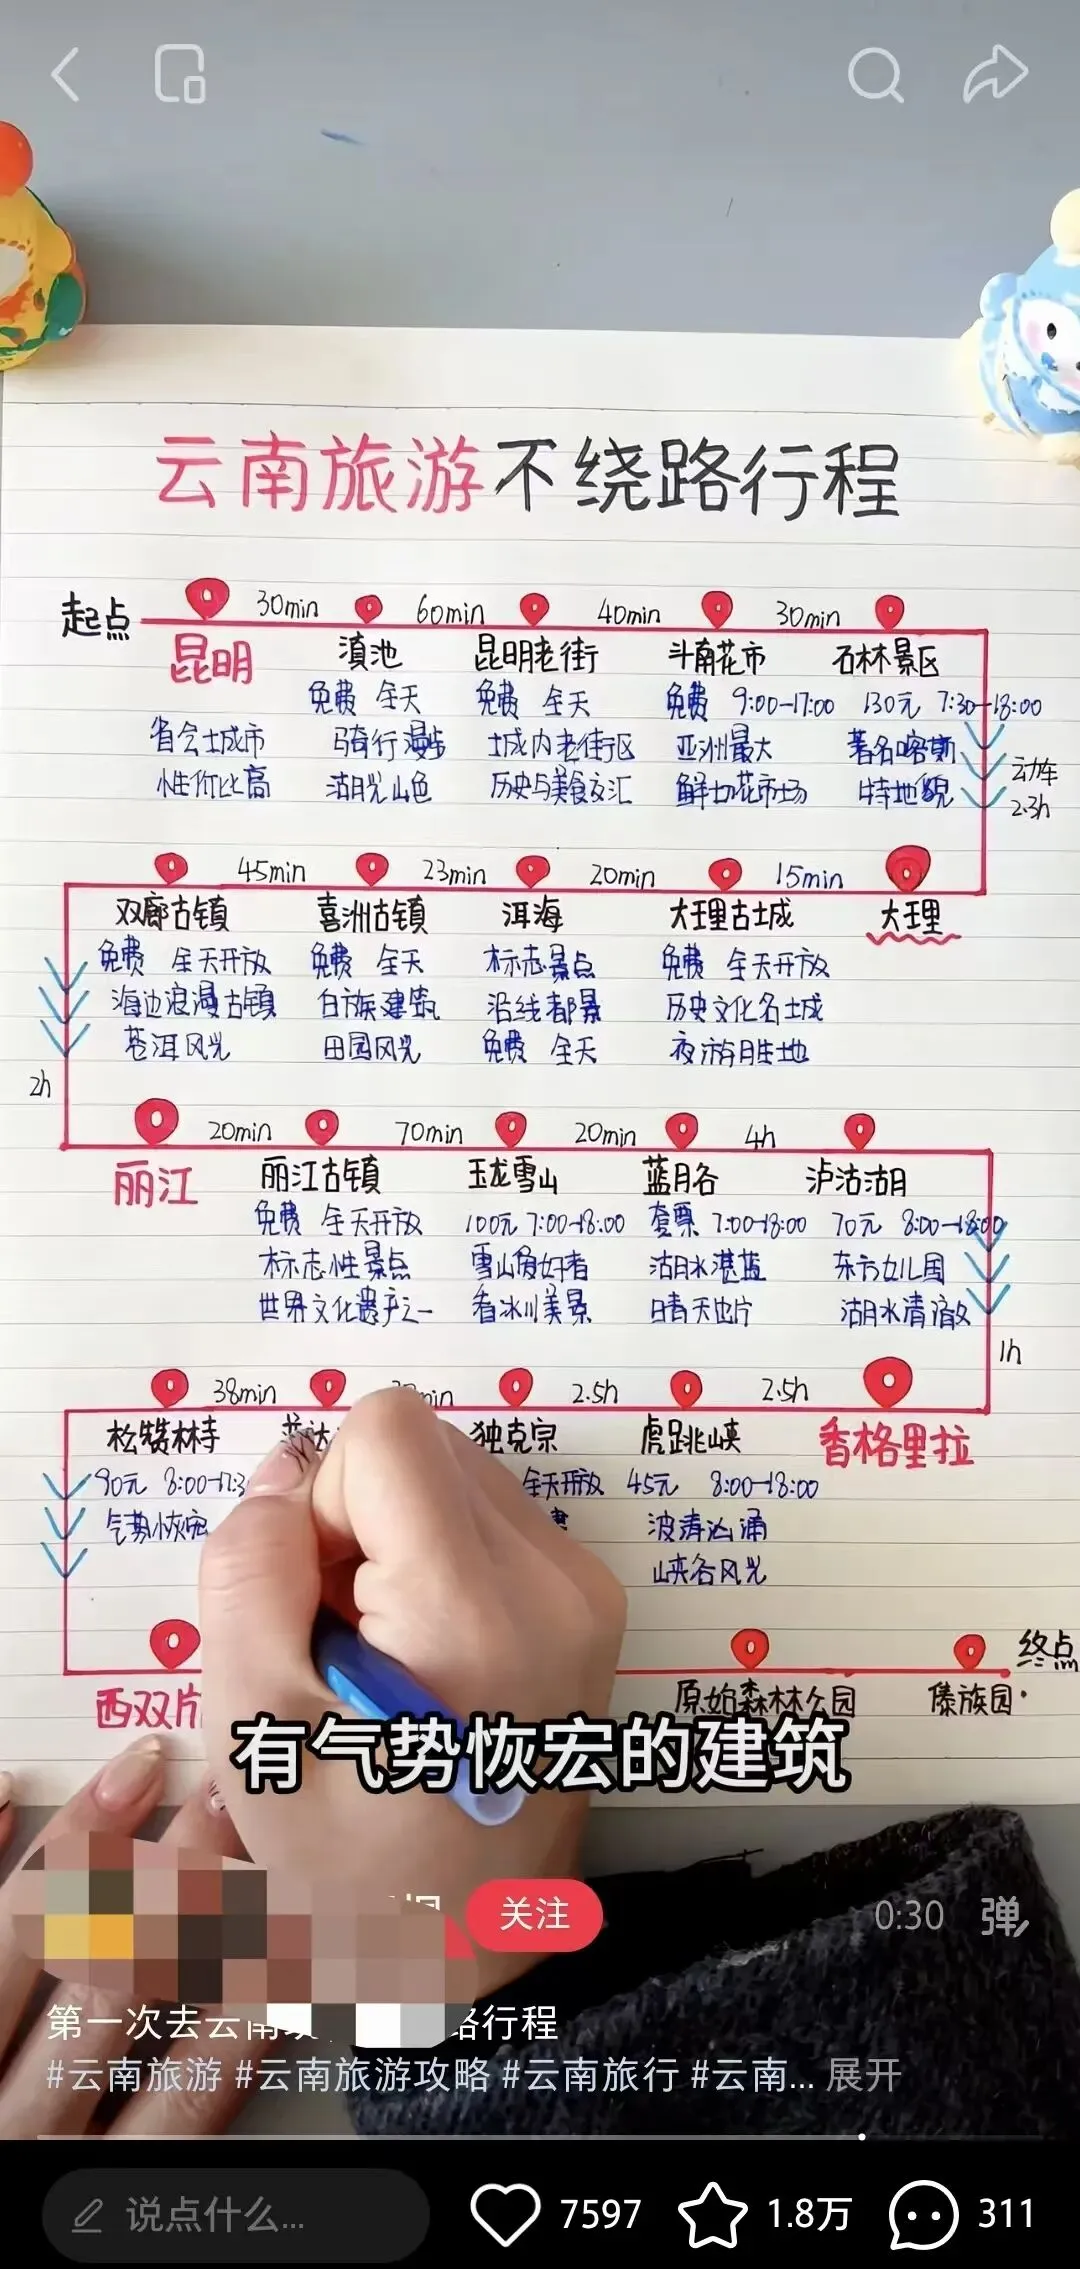 云南旅游不绕路行程
起点 30min 60min 40min 30min
昆明 滇池 昆明老街 斗南花市 石林景区
免费 全天 免费 全天 免费 9:00-17:00 130元 7:30-18:00
省会城市 骑行漫步 城内老街区 亚洲最大 著名喀斯
性价比高 湖光山色 历史与美食交汇 鲜切花市场 特地貌
动车
2.3h
45min 23min 20min 15min
双廊古镇 喜洲古镇 洱海 大理古城 大理
免费 全天开放 免费 全天 标志景点 免费 全天开放
海边浪漫古镇 白族建筑 沿线都景 历史文化名城
苍洱风光 田园风光 免费 全天 夜游胜地
2h
20min 70min 20min 4h
丽江 丽江古镇 玉龙雪山 蓝月谷 泸沽湖
免费 全天开放 100元 7:00-18:00 套票 7:00-18:00 70元 8:00-18:00
标志性景点 雪山爱好者 湖水湛蓝 东方女儿国
世界文化遗产之一 看冰川美景 晴天出片 湖水清澈
1h
38min min 2.5h 2.5h
松赞林寺 独克宗 虎跳峡 香格里拉
90元 8:00-17:3 全天开放 45元 8:00-18:00
气势恢宏 波涛汹涌
峡谷风光
终点
西双片 原始森林公园 傣族园
有气势恢宏的建筑
关注 0:30 弹
第一次去云南 路行程
#云南旅游 #云南旅游攻略 #云南旅行 #云南... 展开
说点什么... 7597 1.8万 311